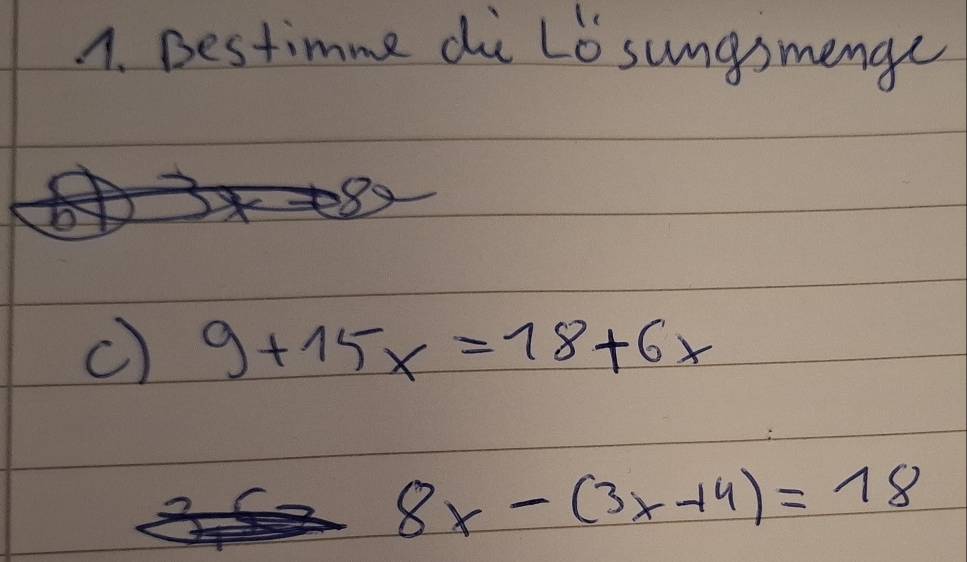 1. Bestimme die Lösungsmenge
c) 9+15x=18+6x
8x-(3x+4)=18